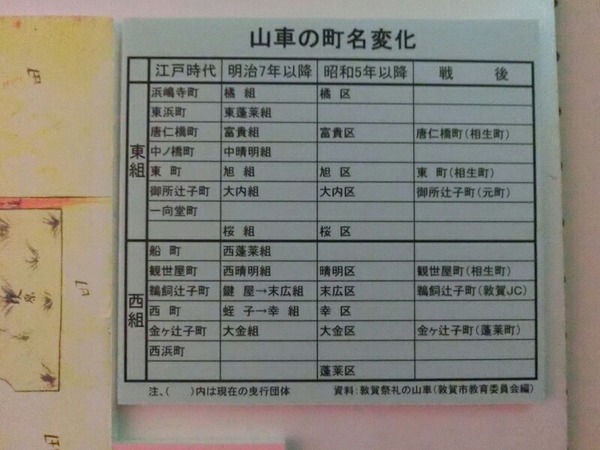 山車の町名変化
江戸時代 明治7年以降 昭和5年以降 戦 後
東組
浜嶋寺町 橘 組 橘 区
東浜町 東蓬莱組
唐仁橋町 富貴組 富貴区 唐仁橋町(相生町)
中ノ橋町 中晴明組
東 町 旭 組 旭 区 東 町(相生町)
御所辻子町 大内組 大内区 御所辻子町(元町)
一向堂町
桜 組 桜 区
西組
船 町 西蓬莱組
観世屋町 西晴明組 晴明区 観世屋町(相生町)
鵜飼辻子町 鍵 屋→末広組 末広区 鵜飼辻子町(敦賀JC)
西 町 蛭 子→幸 組 幸 区
金ヶ辻子町 大金組 大金区 金ヶ辻子町(蓬莱町)
西浜町
蓬莱区
注、( )内は現在の曳行団体 資料:敦賀祭礼の山車(敦賀市教育委員会編)